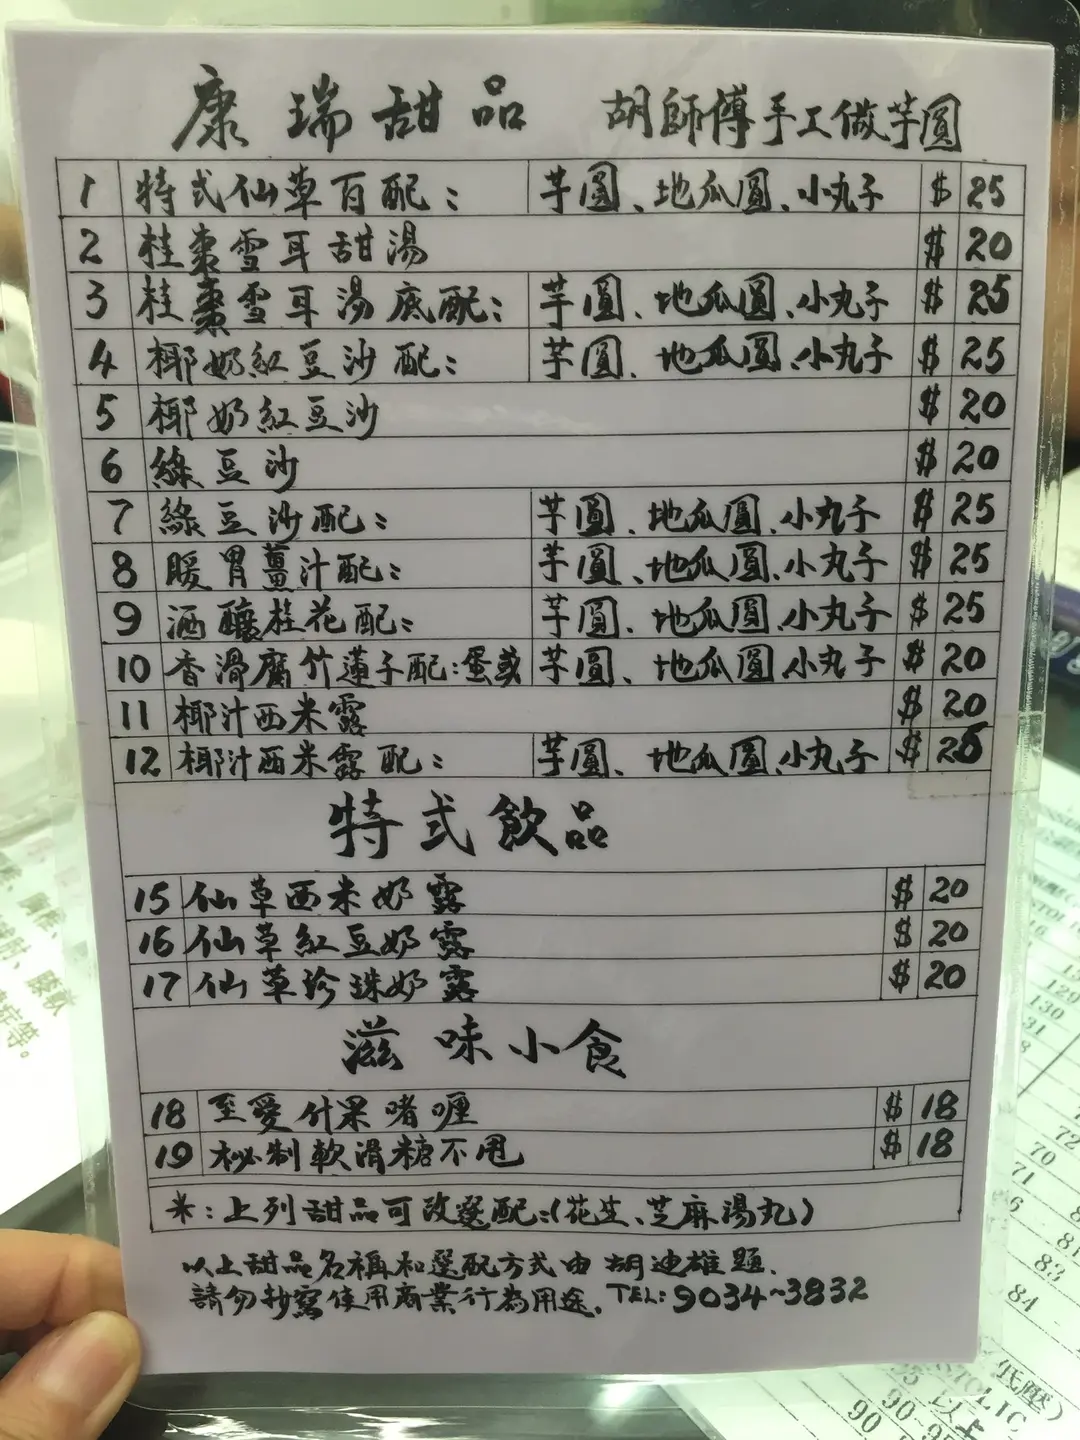 康瑞甜品 胡師傅手工做芋圓
1 特式仙草百配： 芋圓、地瓜圓、小丸子 $ 25
2 桂棗雪耳甜湯 $ 20
3 桂棗雪耳湯底配： 芋圓、地瓜圓、小丸子 $ 25
4 椰奶紅豆沙配： 芋圓、地瓜圓、小丸子 $ 25
5 椰奶紅豆沙 $ 20
6 綠豆沙 $ 20
7 綠豆沙配： 芋圓、地瓜圓、小丸子 $ 25
8 暖胃薑汁配： 芋圓、地瓜圓、小丸子 $ 25
9 酒釀桂花配： 芋圓、地瓜圓、小丸子 $ 25
10 香滑腐竹蓮子配：蛋或 芋圓、地瓜圓、小丸子 $ 20
11 椰汁西米露 $ 20
12 椰汁西米露配： 芋圓、地瓜圓、小丸子 $ 25
特式飲品
15 仙草西米奶露 $ 20
16 仙草紅豆奶露 $ 20
17 仙草珍珠奶露 $ 20
滋味小食
18 至愛什果啫喱 $ 18
19 秘制軟滑糖不甩 $ 18
*：上列甜品可改選配：（花生、芝麻湯丸）
以上甜品名稱和選配方式由胡迪雄題．
請勿抄寫使用商業行為用途． TEL: 9034~3832
症等。
130
72
70
71
81
83
84
低壓)
STOLIC
以上
90